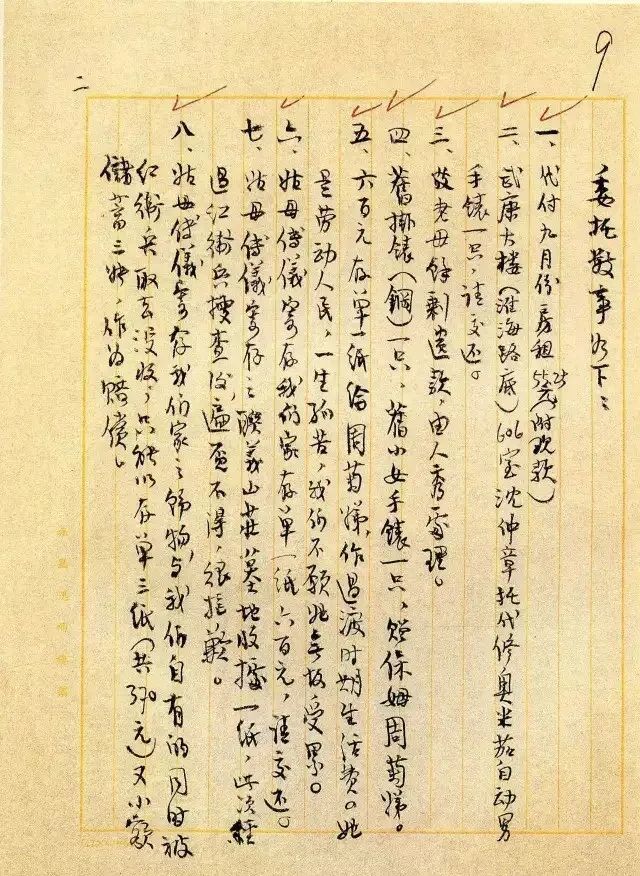 9
二
委托数事如下：
一、代付九月份房租55.29元（附现款）
二、武康大楼（淮海路底）606室沈仲章托代修奥米茄自动男
手錶一只，請交还。
三、故老母餘剩遗款，由人秀處理。
四、舊掛錶（鋼）一只，舊小女手錶一只，贈保姆周菊娣。
五、六百元存單一紙給周菊娣，作過渡时期生活费。她
是劳动人民，一生孤苦，我们不願她無故受累。
六、姑母傅儀寄存我们家存單一纸六百元，請交还。
七、姑母傅儀寄存之聯義山莊墓地收據一纸，此次經
過红衛兵搜查後，遍覓不得，很抱歉。
八、姑母傅儀寄存我们家之飾物，与我们自有的同时被
红衛兵取去没收，只能以存單三纸（共370元）又小額
儲蓄三张，作为賠償。